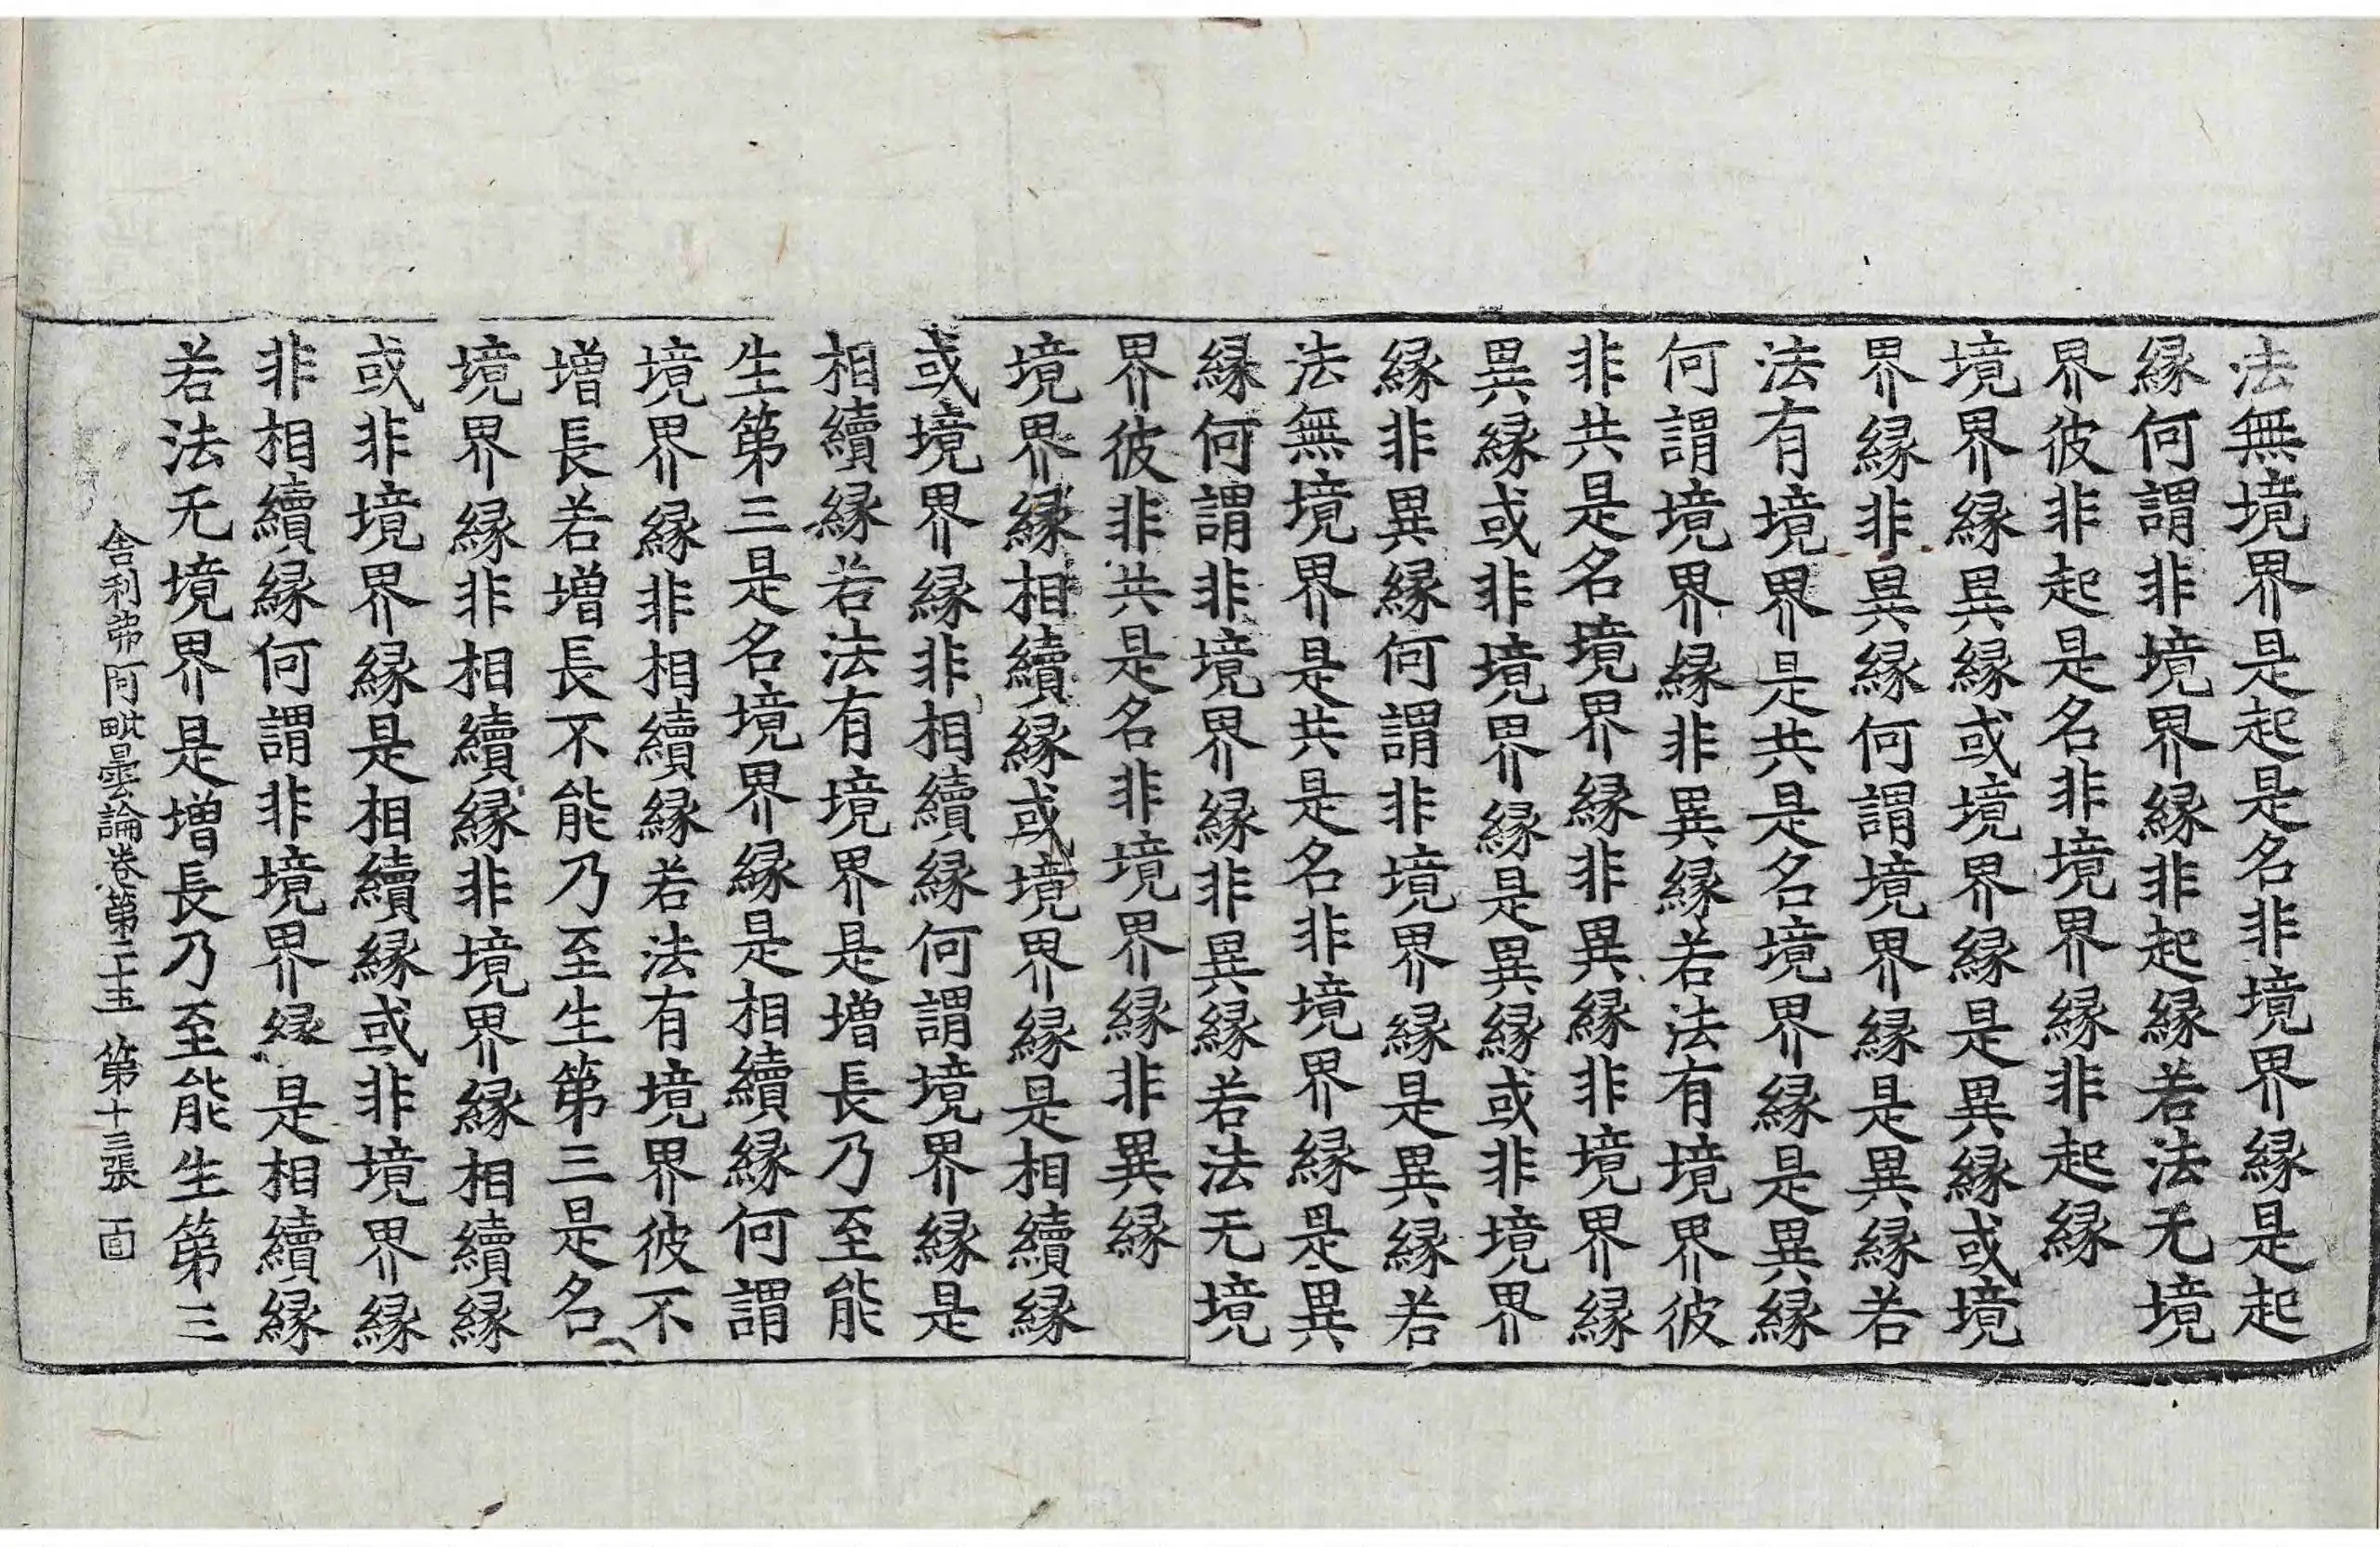 法無境界是起是名非境界縁是起
縁何謂非境界縁非起縁若法无境
界彼非起是名非境界縁非起縁
境界縁異縁或境界縁是異縁或境
界縁非異縁何謂境界縁是異縁若
法有境界是共是名境界縁是異縁
何謂境界縁非異縁若法有境界彼
非共是名境界縁非異縁非境界縁
異縁或非境界縁是異縁或非境界
縁非異縁何謂非境界縁是異縁若
法無境界是共是名非境界縁是異
縁何謂非境界縁非異縁若法无境
界彼非共是名非境界縁非異縁
境界縁相續縁或境界縁是相續縁
或境界縁非相續縁何謂境界縁是
相續縁若法有境界是増長乃至能
生第三是名境界縁是相續縁何謂
境界縁非相續縁若法有境界彼不
増長若増長不能乃至生第三是名
境界縁非相續縁非境界縁相續縁
或非境界縁是相續縁或非境界縁
非相續縁何謂非境界縁是相續縁
若法无境界是増長乃至能生第三
舎利弗阿毗曇論卷第二十五 第十三張 面